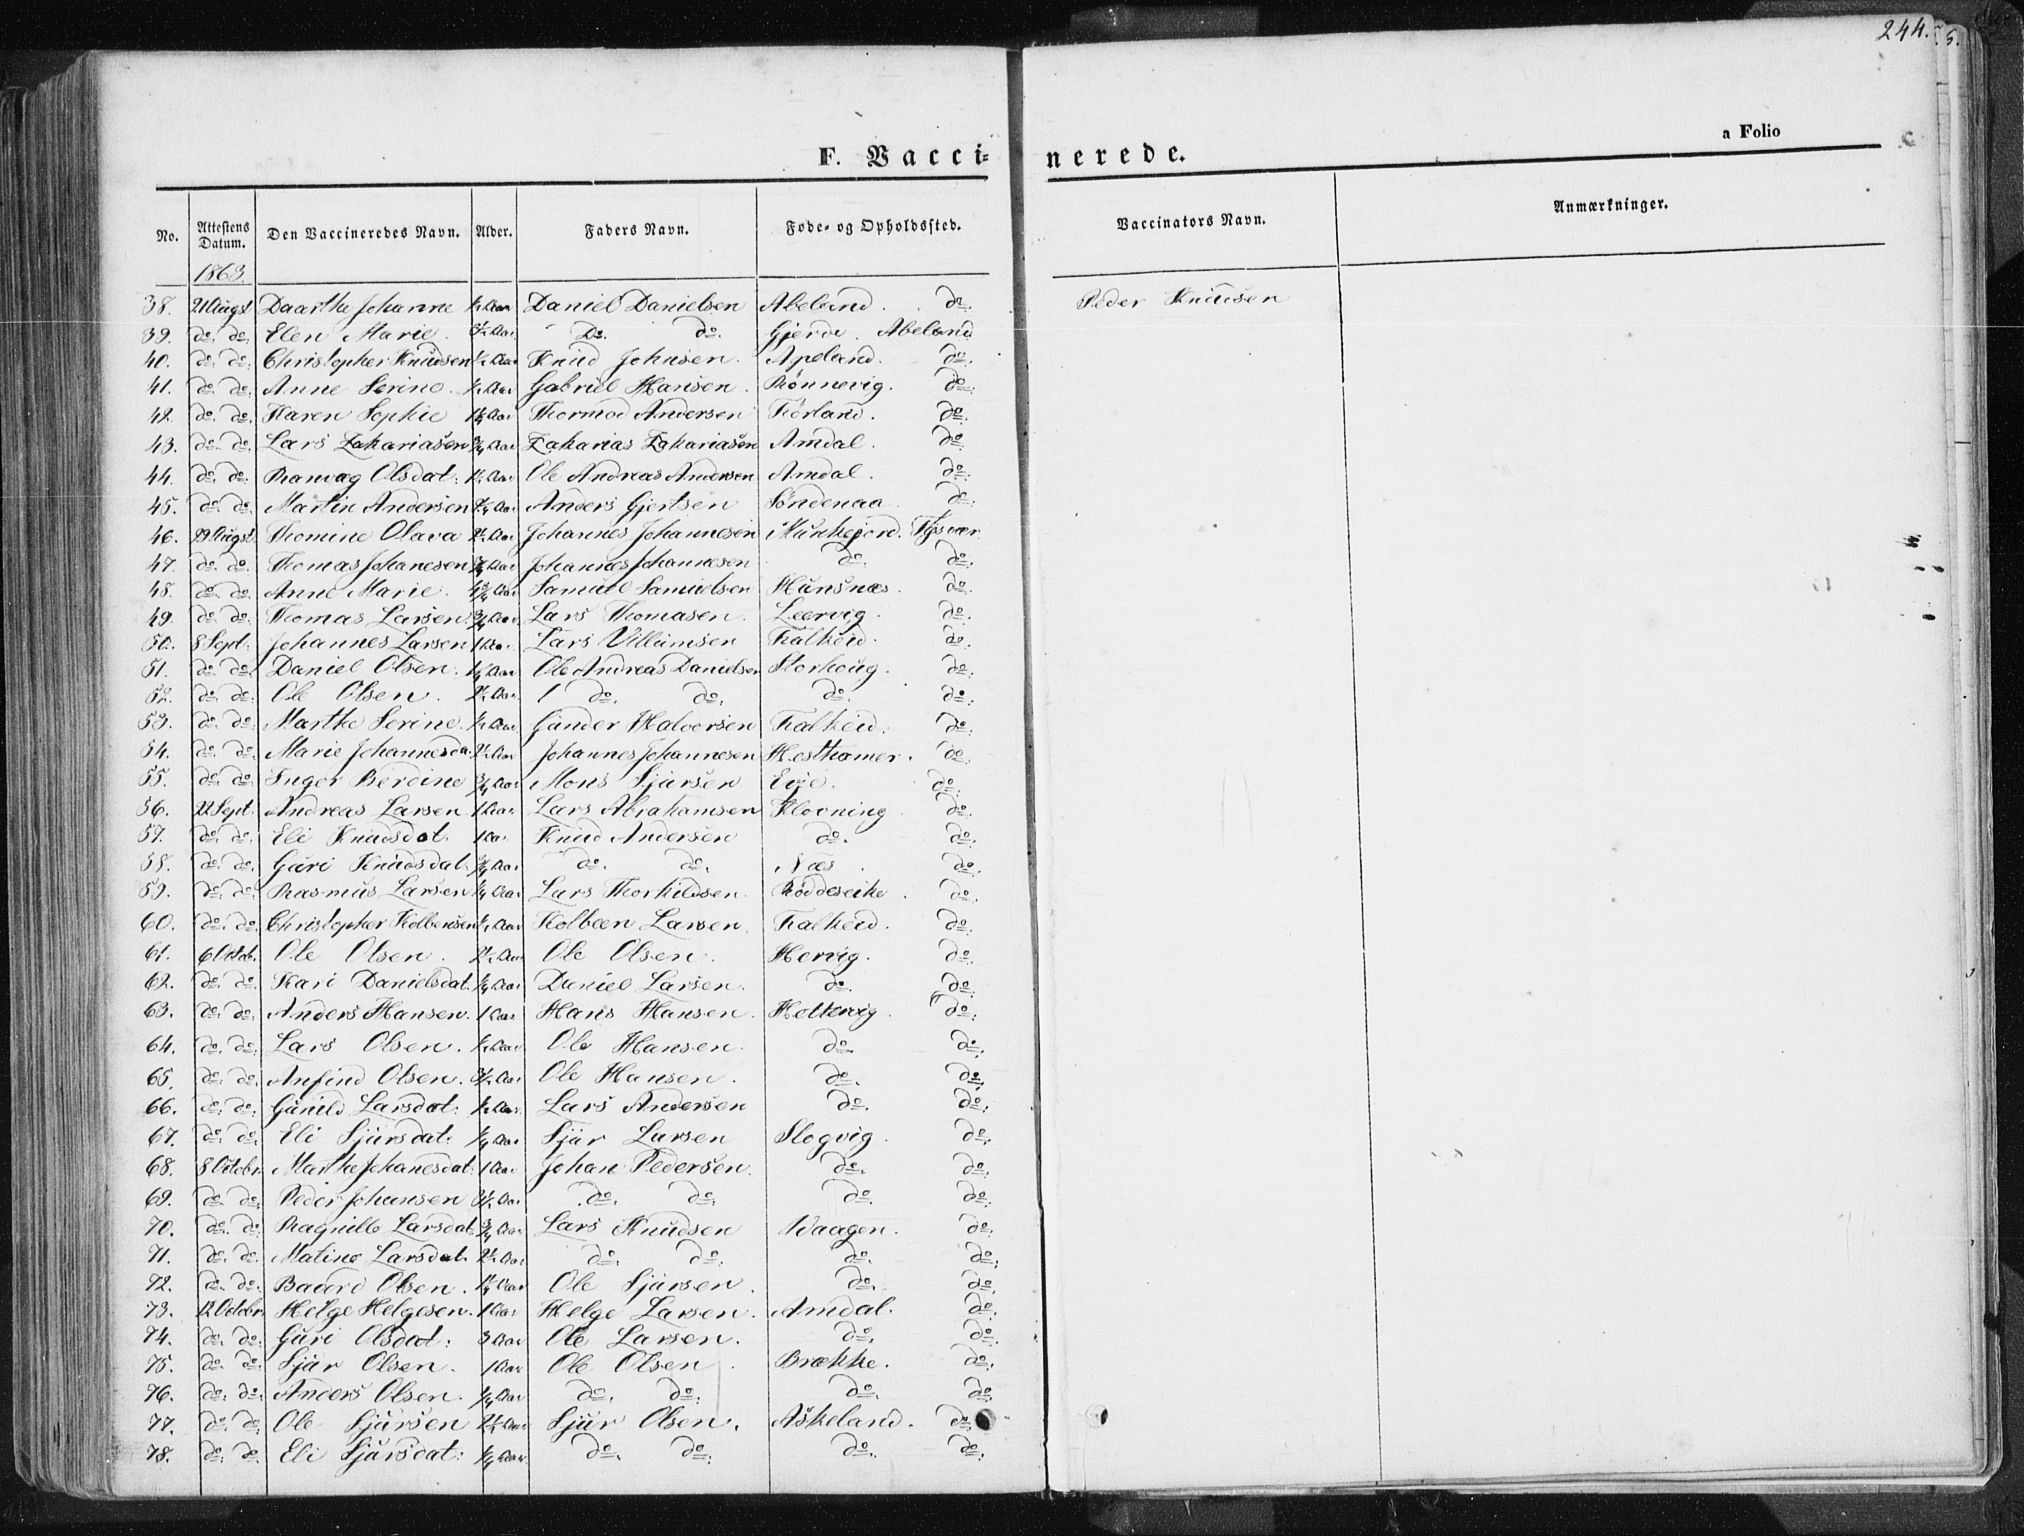 244.
a Folio
F. Vacci- nerede.
No. Attestens Datum. Den Vaccineredes Navn. Alder. Faders Navn. Føde- og Opholdssted. Vaccinators Navn. Anmærkninger.
1863.
38. 21 Augst Daarthe Johanne ½ Aar Daniel Danielsen Abeland. do. Peder Knudsen
39. do. do. Elen Marie 3½ Aar Do. do. Gjerde Abeland
40. do. do. Christopher Knudsen ½ Aar Knud Johnsen. Apeland. do.
41. do. do. Anne Serine. ½ Aar Gabriel Hansen. Rønnevig. do.
42. do. do. Karen Sophie Aar Thormod Andersen Førland. do.
43. do. do. Lars Zakariasen ¾ Aar Zakarias Zakariasen Amdal. do.
44. do. do. Ranvag Olsdat: Aar Ole Andreas Andersen Amdal. do.
45. do. do. Martin Andersen Aar Anders Gjertsen Søndenaa do:
46. 29 Augst Thomine Olava 2½ Aar Johannes Johannesen Munkejord. Tysvær
47. do. do. Thomas Johanesen ¾ Aar Johannes Johannesen do. do.
48. do. do. Anne Marie. Aar Samuel Samuelsen Hunsnæs. do.
49. do. do. Thomas Larsen ¾ Aar Lars Thomasen. Leervig. do.
50. 8 Sept: Johannes Larsen 1 Aar Lars Villumsen Falkeid. do.
51. do. do. Daniel Olsen. ¼ Aar Ole Andreas Danielsen Storhoug. do.
52. do. do. Ole Olsen. 2½ Aar do. do. do. do.
53. do. do. Marthe Serine ½ Aar Gunder Halvorsen Falkeid. do.
54. do. do. Marie Johannesda 2½ Aar Johannes Johannesen Hesthamer. do.
55. do. do. Inger Berdine ¾ Aar Mons Sjursen Evje. do.
56. 22 Sept. Andreas Larsen 1 Aar Lars Abrahamsen Klovning do.
57. do. do. Eli Knudsdat. 1 Aar Knud Andersen do. do.
58. do. do. Guri Knudsdat. Aar do. do. Næs. do.
59. do. do. Rasmus Larsen ¼ Aar Lars Thorkildsen. Røddeseike. do.
60. do. do. Christopher Kolbensen ½ Aar Kolbeen Larsen. Falkeid. do.
61. 6 Octob. Ole Olsen. 2½ Aar Ole Olsen. Hervig. do.
62. do. do. Kari Danielsdat. ¼ Aar Daniel Larsen. do. do.
63. do. do. Anders Hansen. 1 Aar Hans Hansen. Hettervig. do.
64. do. do. Lars Olsen. ½ Aar Ole Hansen. do. do.
65. do. do. Anfind Olsen. 3½ Aar Ole Hansen. do. do.
66. do. do. Gunild Larsdat: ½ Aar. Lars Andersen do. do.
67. do. do. Eli Sjursdat: ¼ Aar Sjur Larsen Slogvig. do.
68. 8 Octobr Marthe Johanesdat: 1 Aar Johan Pedersen. do. do.
69. do. do. Peder Johansen 3½ Aar do. do. do. do.
70. do. do. Ragnille Larsdat. ¾ Aar Lars Knudsen Waagen. do.
71. do. do. Maline Larsdat. 2½ Aar do. do. do. do.
72. do. do. Baard Olsen. Aar Ole Sjursen. do. do.
73. 12 Octobr. Helge Helgesen. 1 Aar Helge Larsen. Amdal. do.
74. do. do. Guri Olsdat: 3 Aar Ole Larsen. do. do.
75. do. do. Sjur Olsen. 1 Aar Ole Olsen. Brække. do.
76. do. do. Anders Olsen. ¼ Aar do. do. do. do.
77. do. do. Ole Sjursen 2½ Aar Sjur Olsen. Askeland. do.
78. do. do. Eli Sjursdat: ¼ Aar. do. do. do. do.